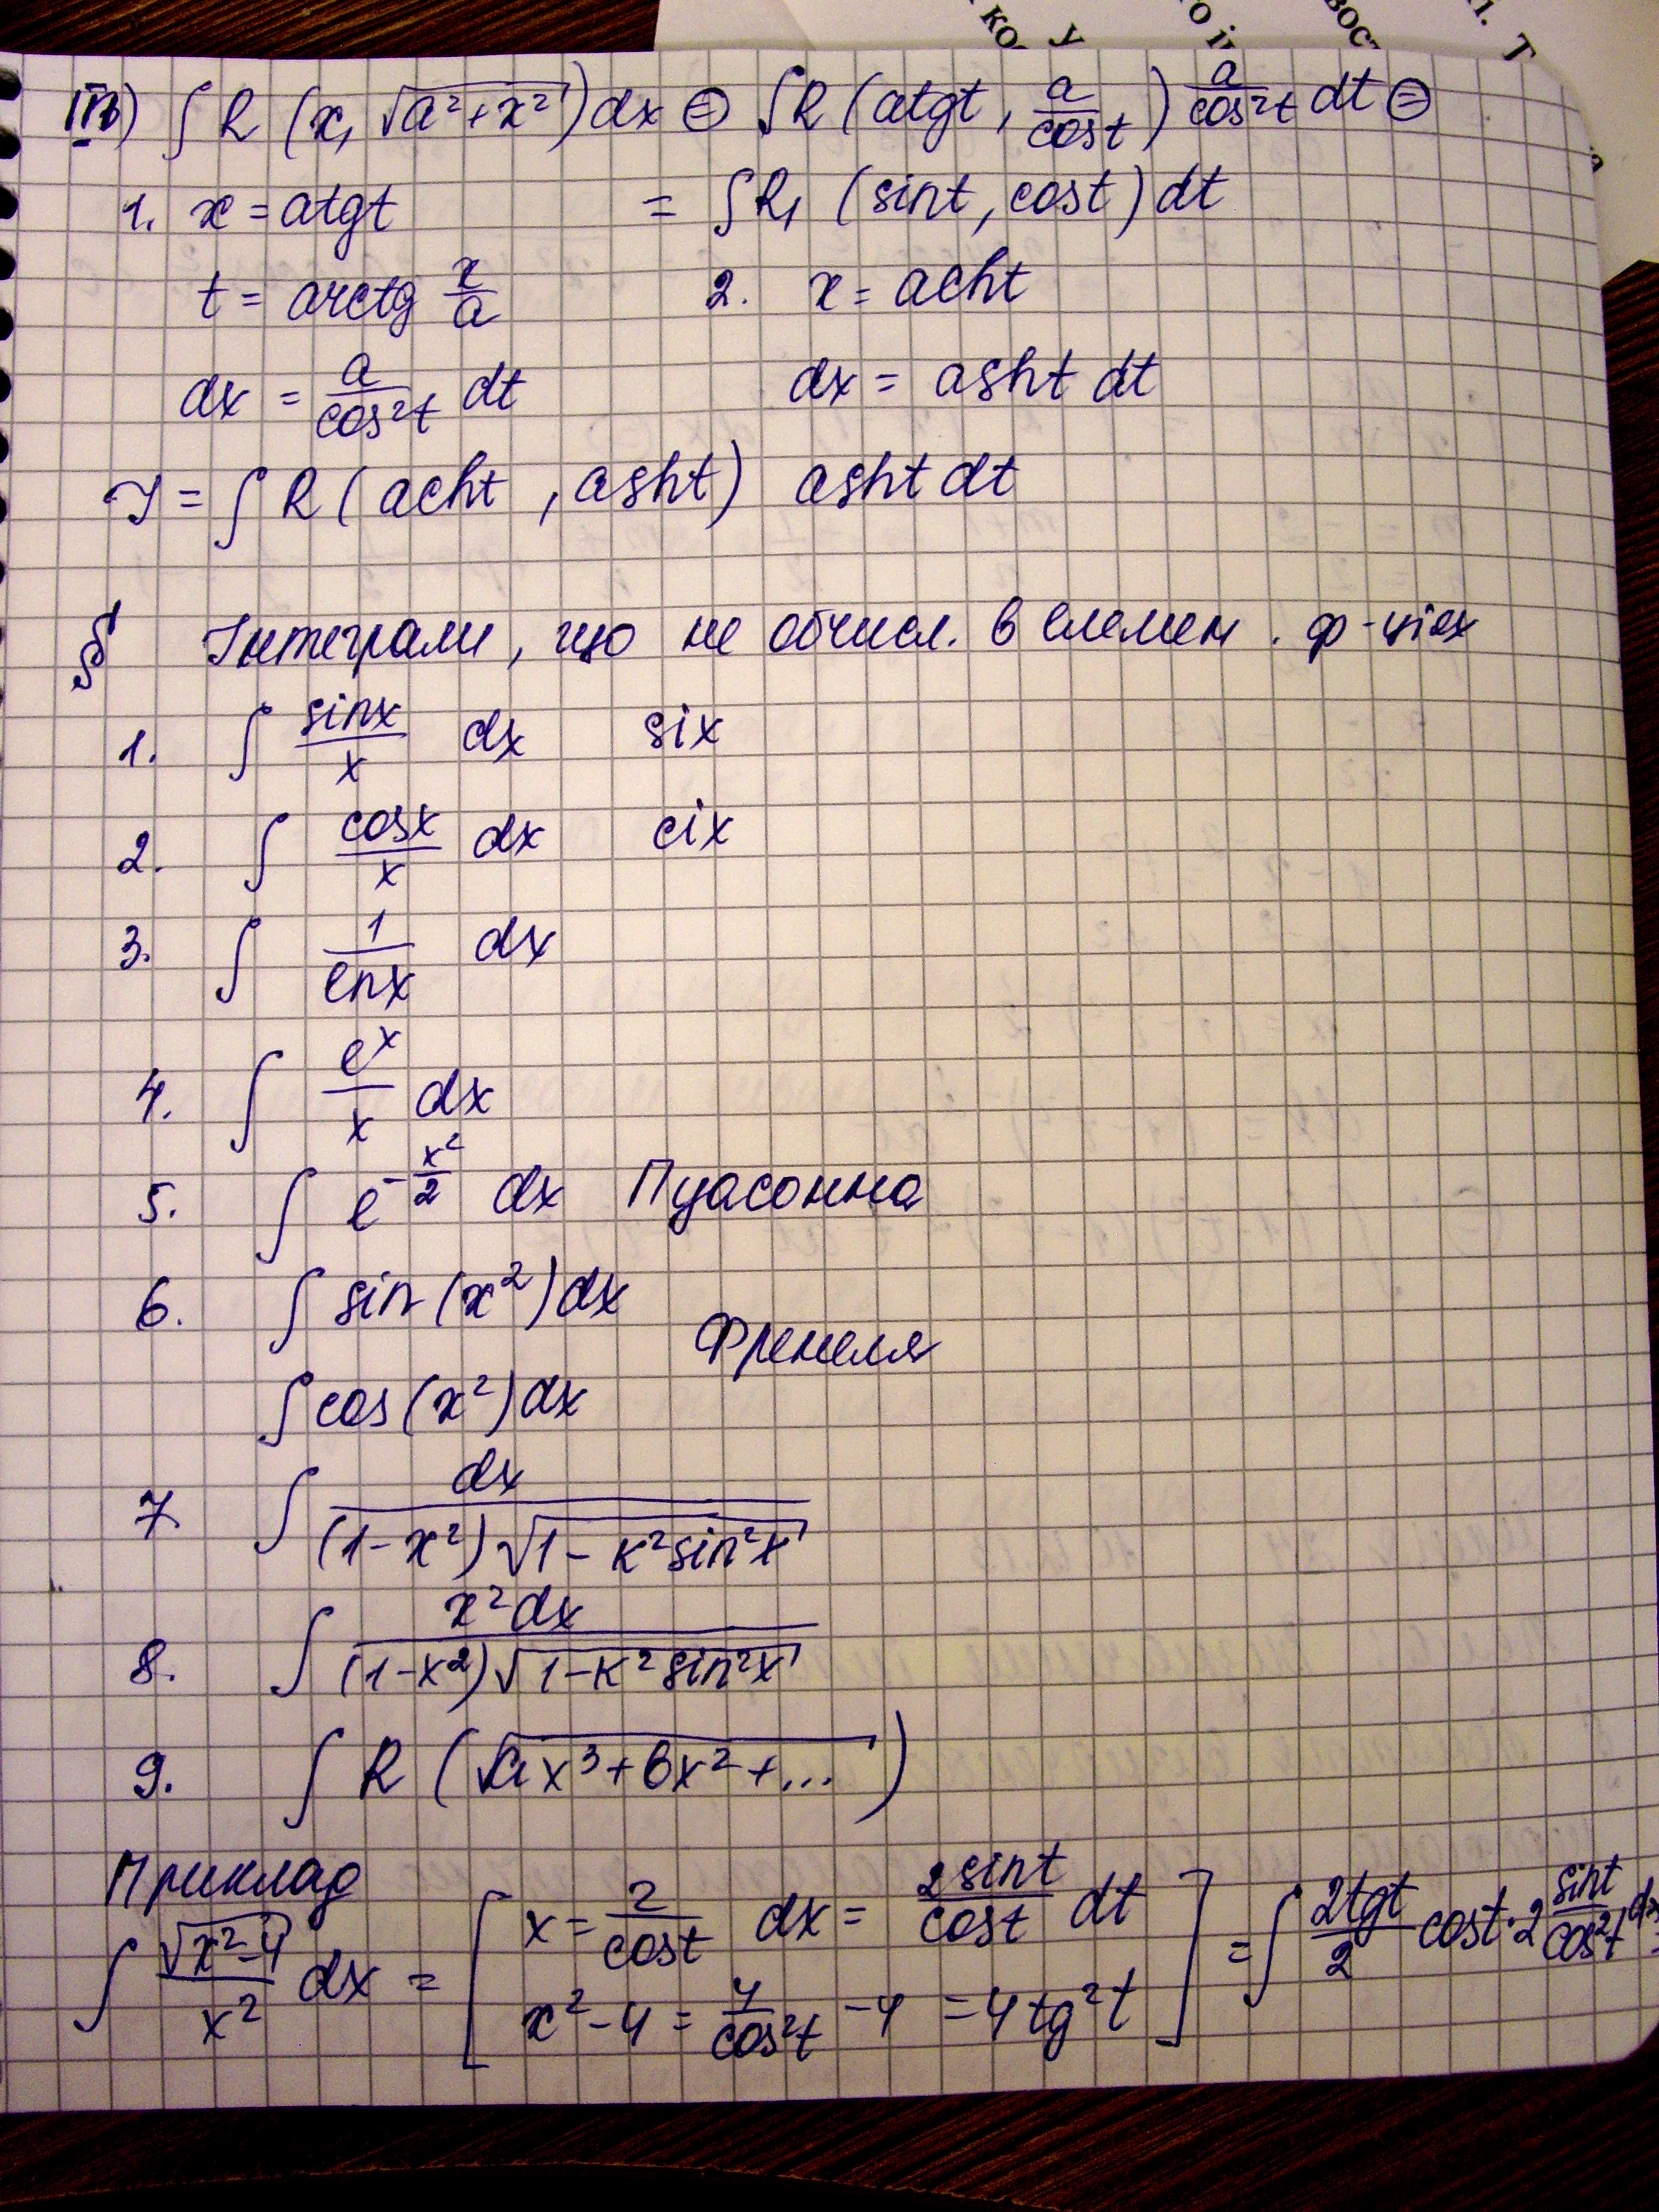 III) ∫ R (x, √(a²+x²)) dx ⊜ ∫R (a tg t, a/cos t) a/cos²t dt ⊜
1. x = a tg t = ∫R₁ (sin t, cos t) dt
t = arctg x/a 2. x = a ch t
dx = a/cos²t dt dx = a sh t dt
I = ∫ R (a ch t, a sh t) a sh t dt
§ Інтеграли, що не обчисл. в елемен. ф-ціях
1. ∫ sinx/x dx six
2. ∫ cosx/x dx cix
3. ∫ 1/lnx dx
4. ∫ e^x/x dx
5. ∫ e^(-x²/2) dx Пуасонна
6. ∫ sin(x²)dx
Френеля
∫ cos(x²)dx
7. ∫ dx/((1-x²)√(1-k²sin²x))
8. ∫ x²dx/((1-x²)√(1-k²sin²x))
9. ∫ R (√(ax³+bx²+...))
Приклад
∫ √(x²-4)/x² dx = [x = 2/cos t dx = 2sin t/cos t dt
x²-4 = 4/cos²t -4 = 4tg²t] = ∫ 2tgt/2 cost·2 sint/cos²t